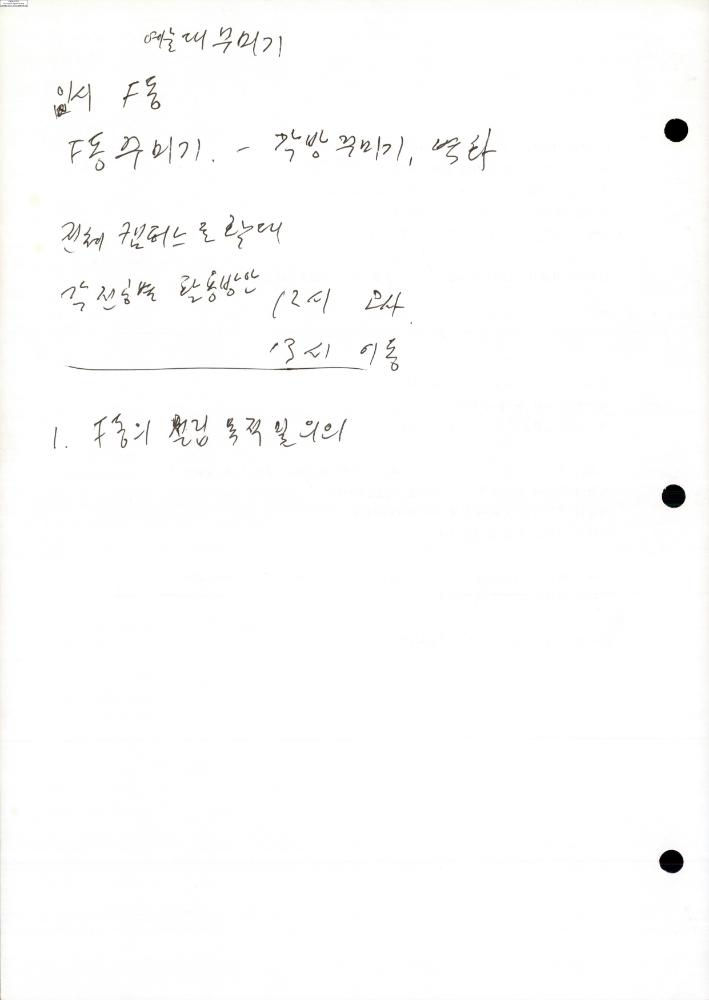 예술대 꾸미기
임시 F동
F동 꾸미기. - 각방 꾸미기, 벽화
전체 캠퍼스로 확대
각 전공별 활용방안 12시 묘사
13시 이동
1. F동의 설립 목적 및 의의